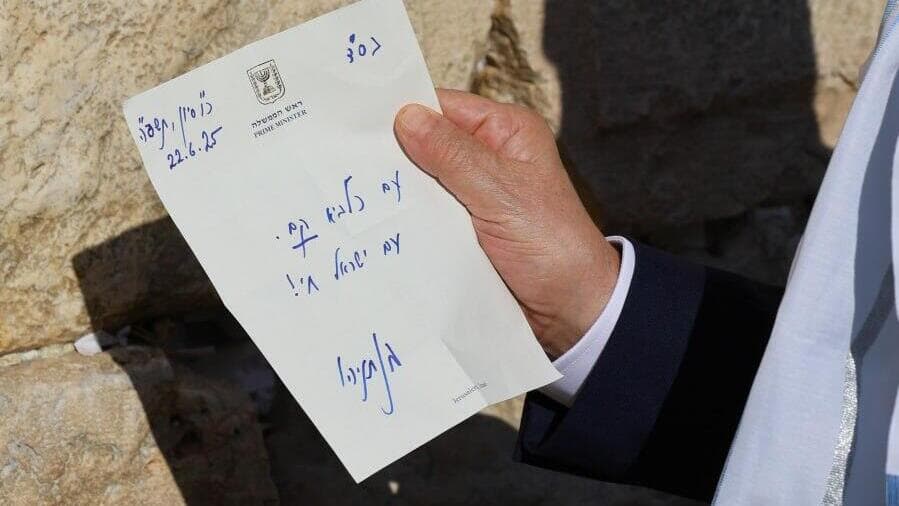 בס"ד
ראש הממשלה
PRIME MINISTER
כ"ו סיון, תשפ"ה
22.6.25
עם כלביא קם.
עם ישראל חי!
ב. נתניהו
Jerusalem